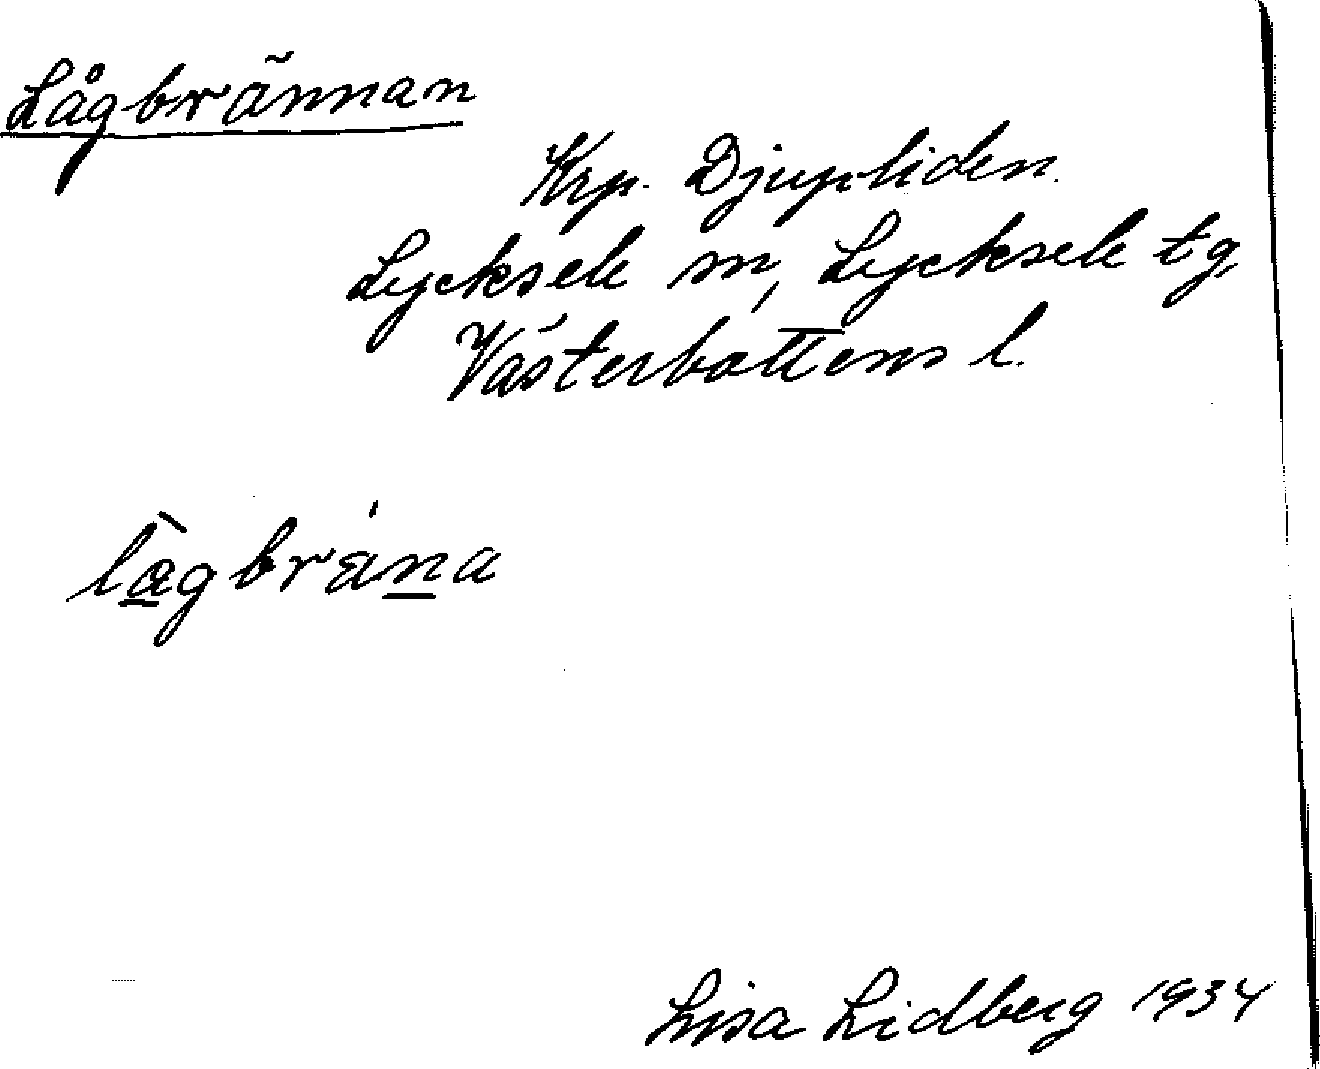 Lågbrännan
Krp. Djupliden.
Lycksele m, Lycksele tg,
Västerbottens l.
làgbrána
Lisa Lidberg 1934